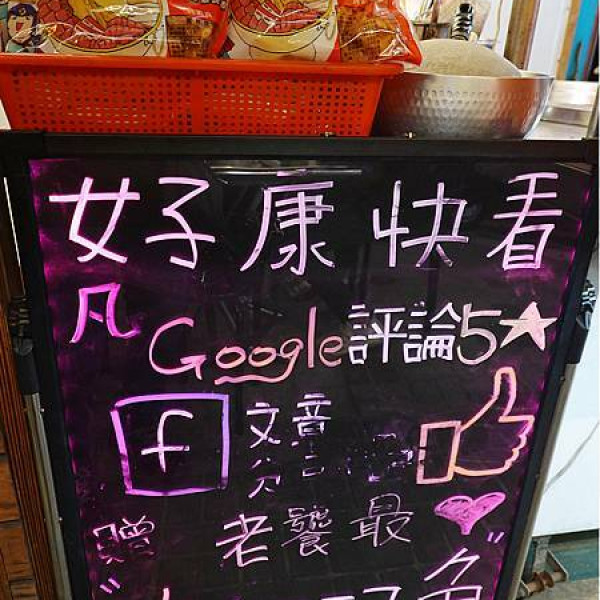 好康快看
凡 Google評論5★
f 文章
老饕最
贈